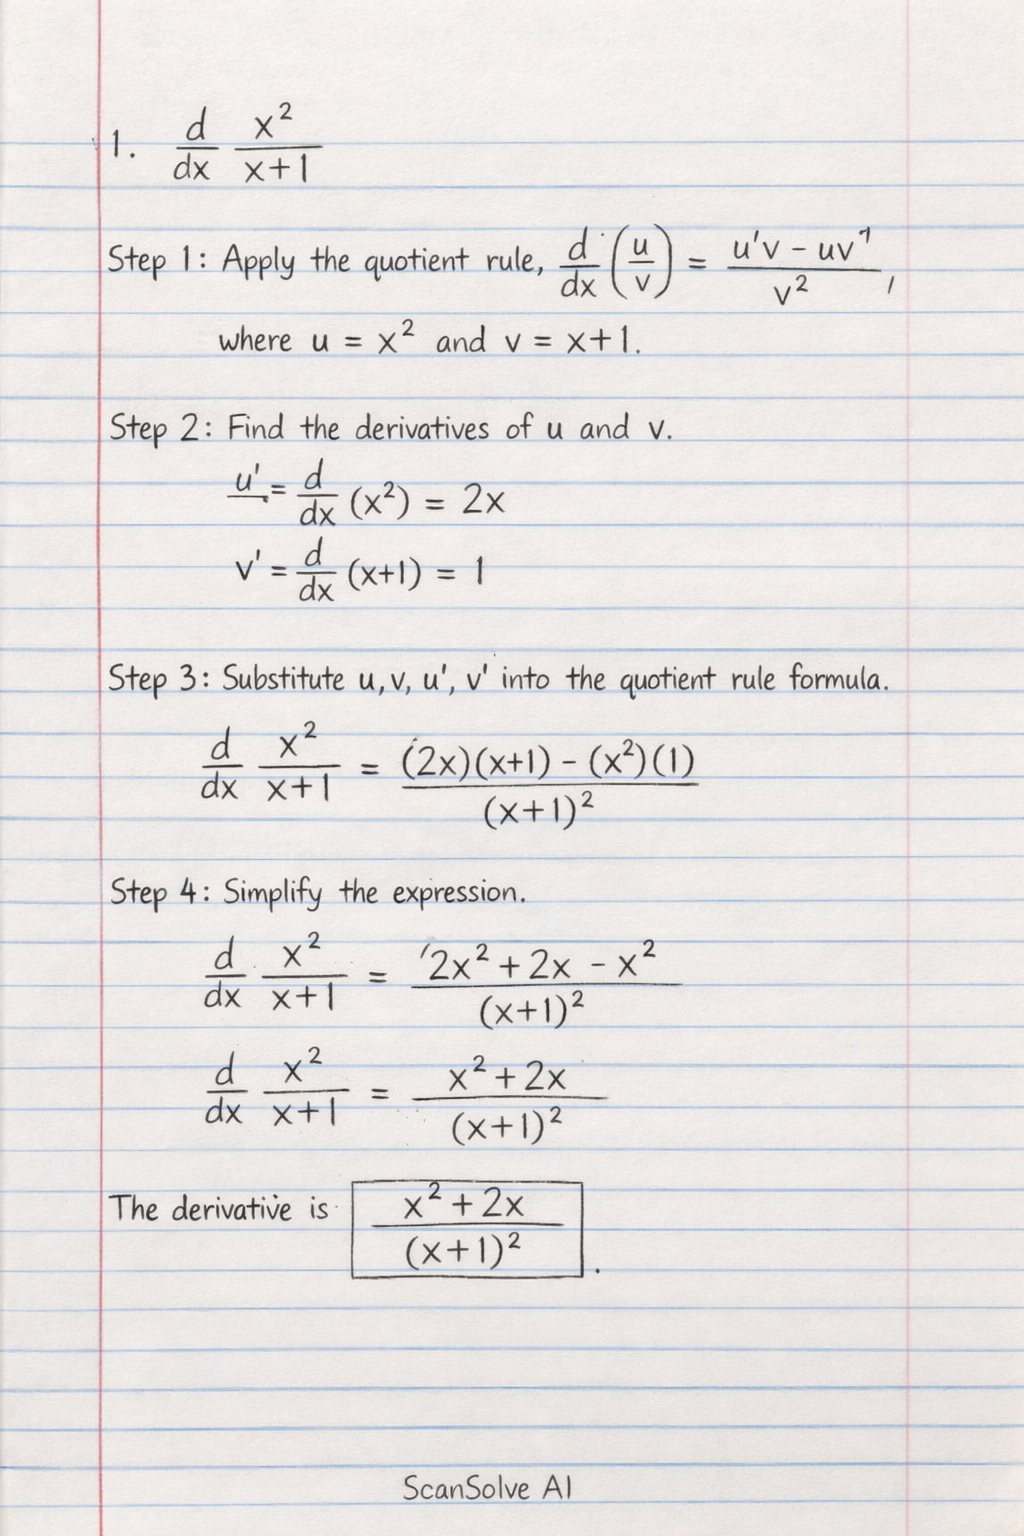 1. d/dx x²/(x+1)
Step 1: Apply the quotient rule, d/dx (u/v) = (u'v - uv')/v²,
where u = x² and v = x+1.
Step 2: Find the derivatives of u and v.
u' = d/dx (x²) = 2x
v' = d/dx (x+1) = 1
Step 3: Substitute u, v, u', v' into the quotient rule formula.
d/dx x²/(x+1) = ((2x)(x+1) - (x²)(1))/(x+1)²
Step 4: Simplify the expression.
d/dx x²/(x+1) = (2x² + 2x - x²)/(x+1)²
d/dx x²/(x+1) = (x² + 2x)/(x+1)²
The derivative is (x² + 2x)/(x+1)².
ScanSolve AI